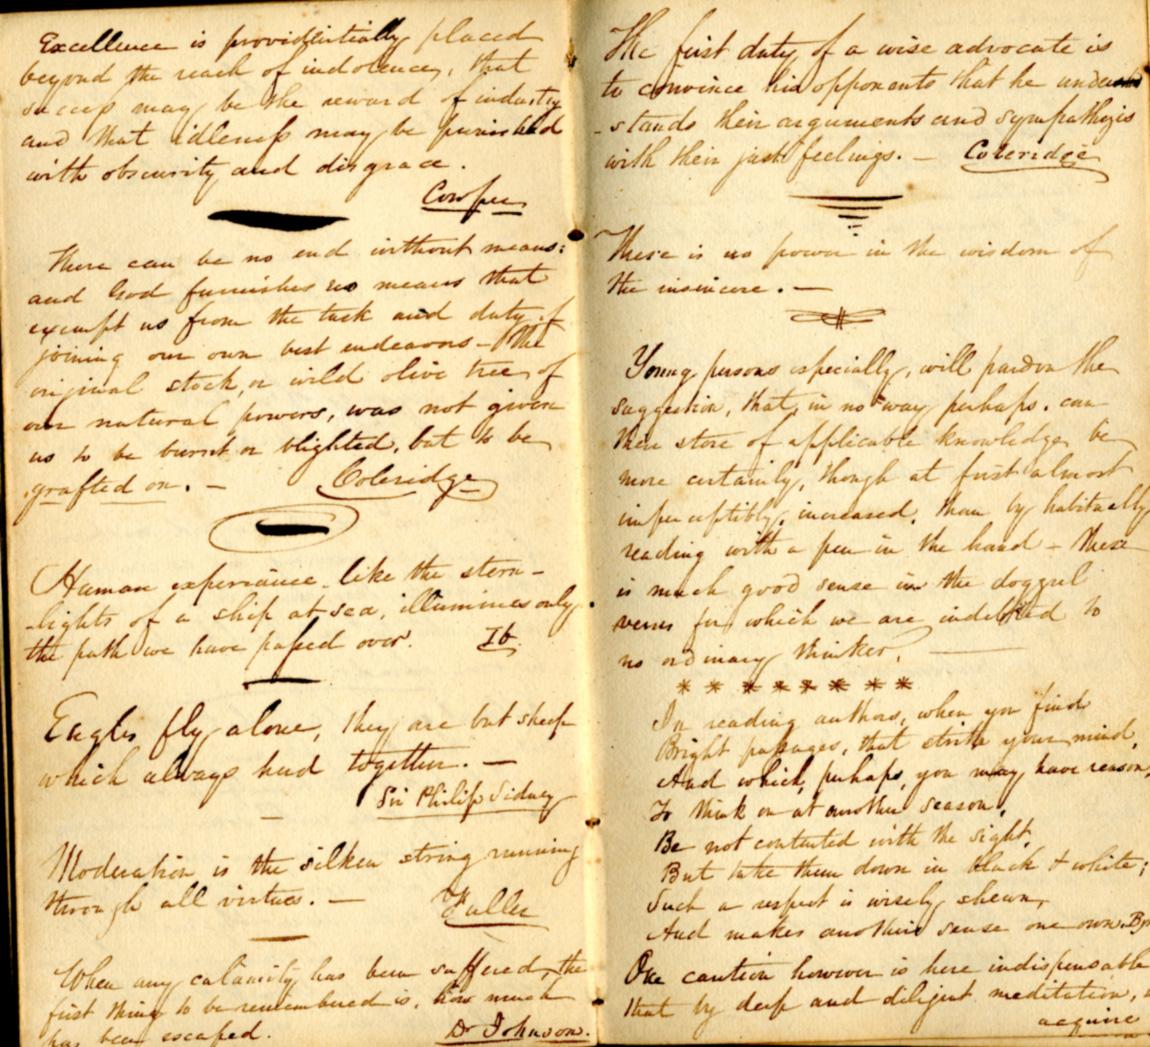 Excellence is providentially placed
beyond the reach of indolence, that
success may be the reward of industry
and that idleness may be punished
with obscurity and disgrace.
Cowper
There can be no end without means:
and God furnishes no means that
exempt us from the task and duty of
joining our own best endeavors - The
original stock, or wild olive tree of
our natural powers, was not given
us to be burnt or blighted, but to be
grafted on. —
Coleridge
Human experience - like the stern-
-lights of a ship at sea, illumines only
the path we have passed over. Ib.
Eagles fly alone, they are but sheep
which always herd together. —
Sir Philip Sidney
Moderation is the silken string running
through all virtues. — Fuller
When any calamity has been suffered, the
first thing to be remembered is, how much
has been escaped. Dr Johnson.
The first duty of a wise advocate is
to convince his opponents that he under
-stands their arguments and sympathizes
with their just feelings. — Coleridge
There is no power in the wisdom of
the insincere. —
Young persons especially, will pardon the
suggestion, that, in no way perhaps, can
their store of applicable knowledge be
more certainly, though at first almost
imperceptibly, increased, than by habitually
reading with a pen in the hand - There
is much good sense in the doggrel
verses for which we are indebted to
no ordinary thinker.
* * * * * * * *
In reading authors, when you find
Bright passages, that strike your mind,
And which, perhaps, you may have reason,
To think on at another season,
Be not contented with the sight,
But take them down in black & white;
Such a respect is wisely shewn,
And makes another's sense one own.
One caution however is here indispensable
that by deep and diligent meditation,
acquire